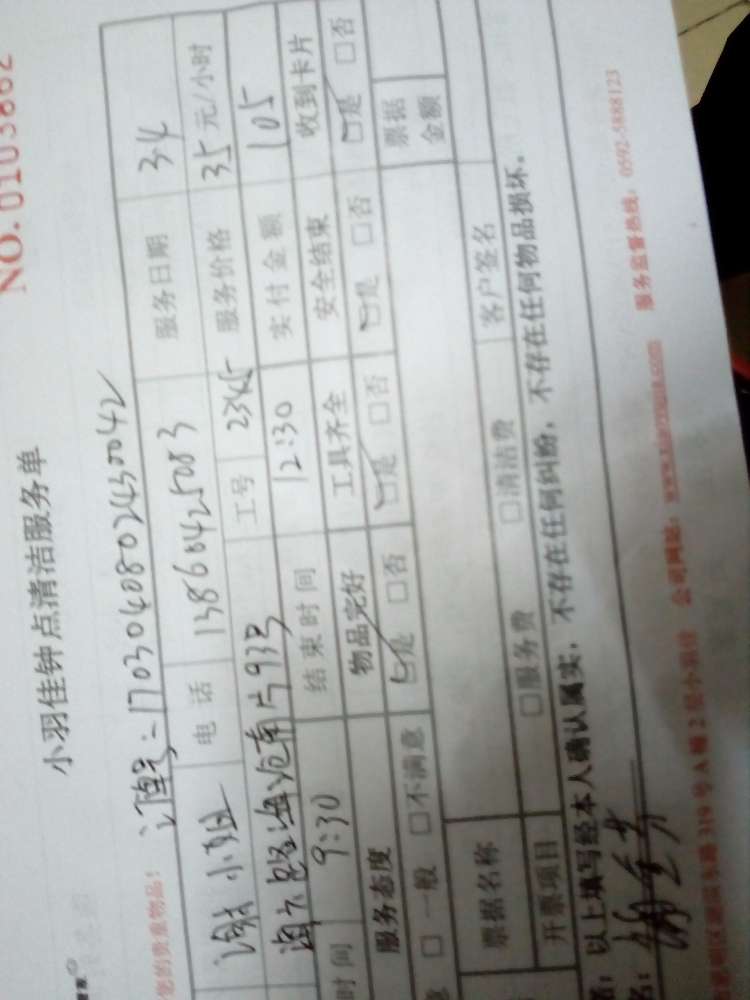 NO.0103862
小羽佳钟点清洁服务单
您的贵重物品！ 订单号:1703040802430042
小姐 电话 13860425083 服务日期 3.4
海沧南片93号 工号 2345 服务价格 35元/小时
时间 9:30 结束时间 12:30 实付金额 105
服务态度 物品完好 工具齐全 安全结束 收到卡片
□一般 □不满意 □是 □否 □是 □否 □是 □否 □是 □否
票据名称 票据金额
开票项目 □服务费 □清洁费 客户签名
：以上填写经本人确认属实，不存在任何纠纷，不存在任何物品损坏。
名：
319号A幢2层小羽佳 公司网站： 服务监督热线：0592-5888123